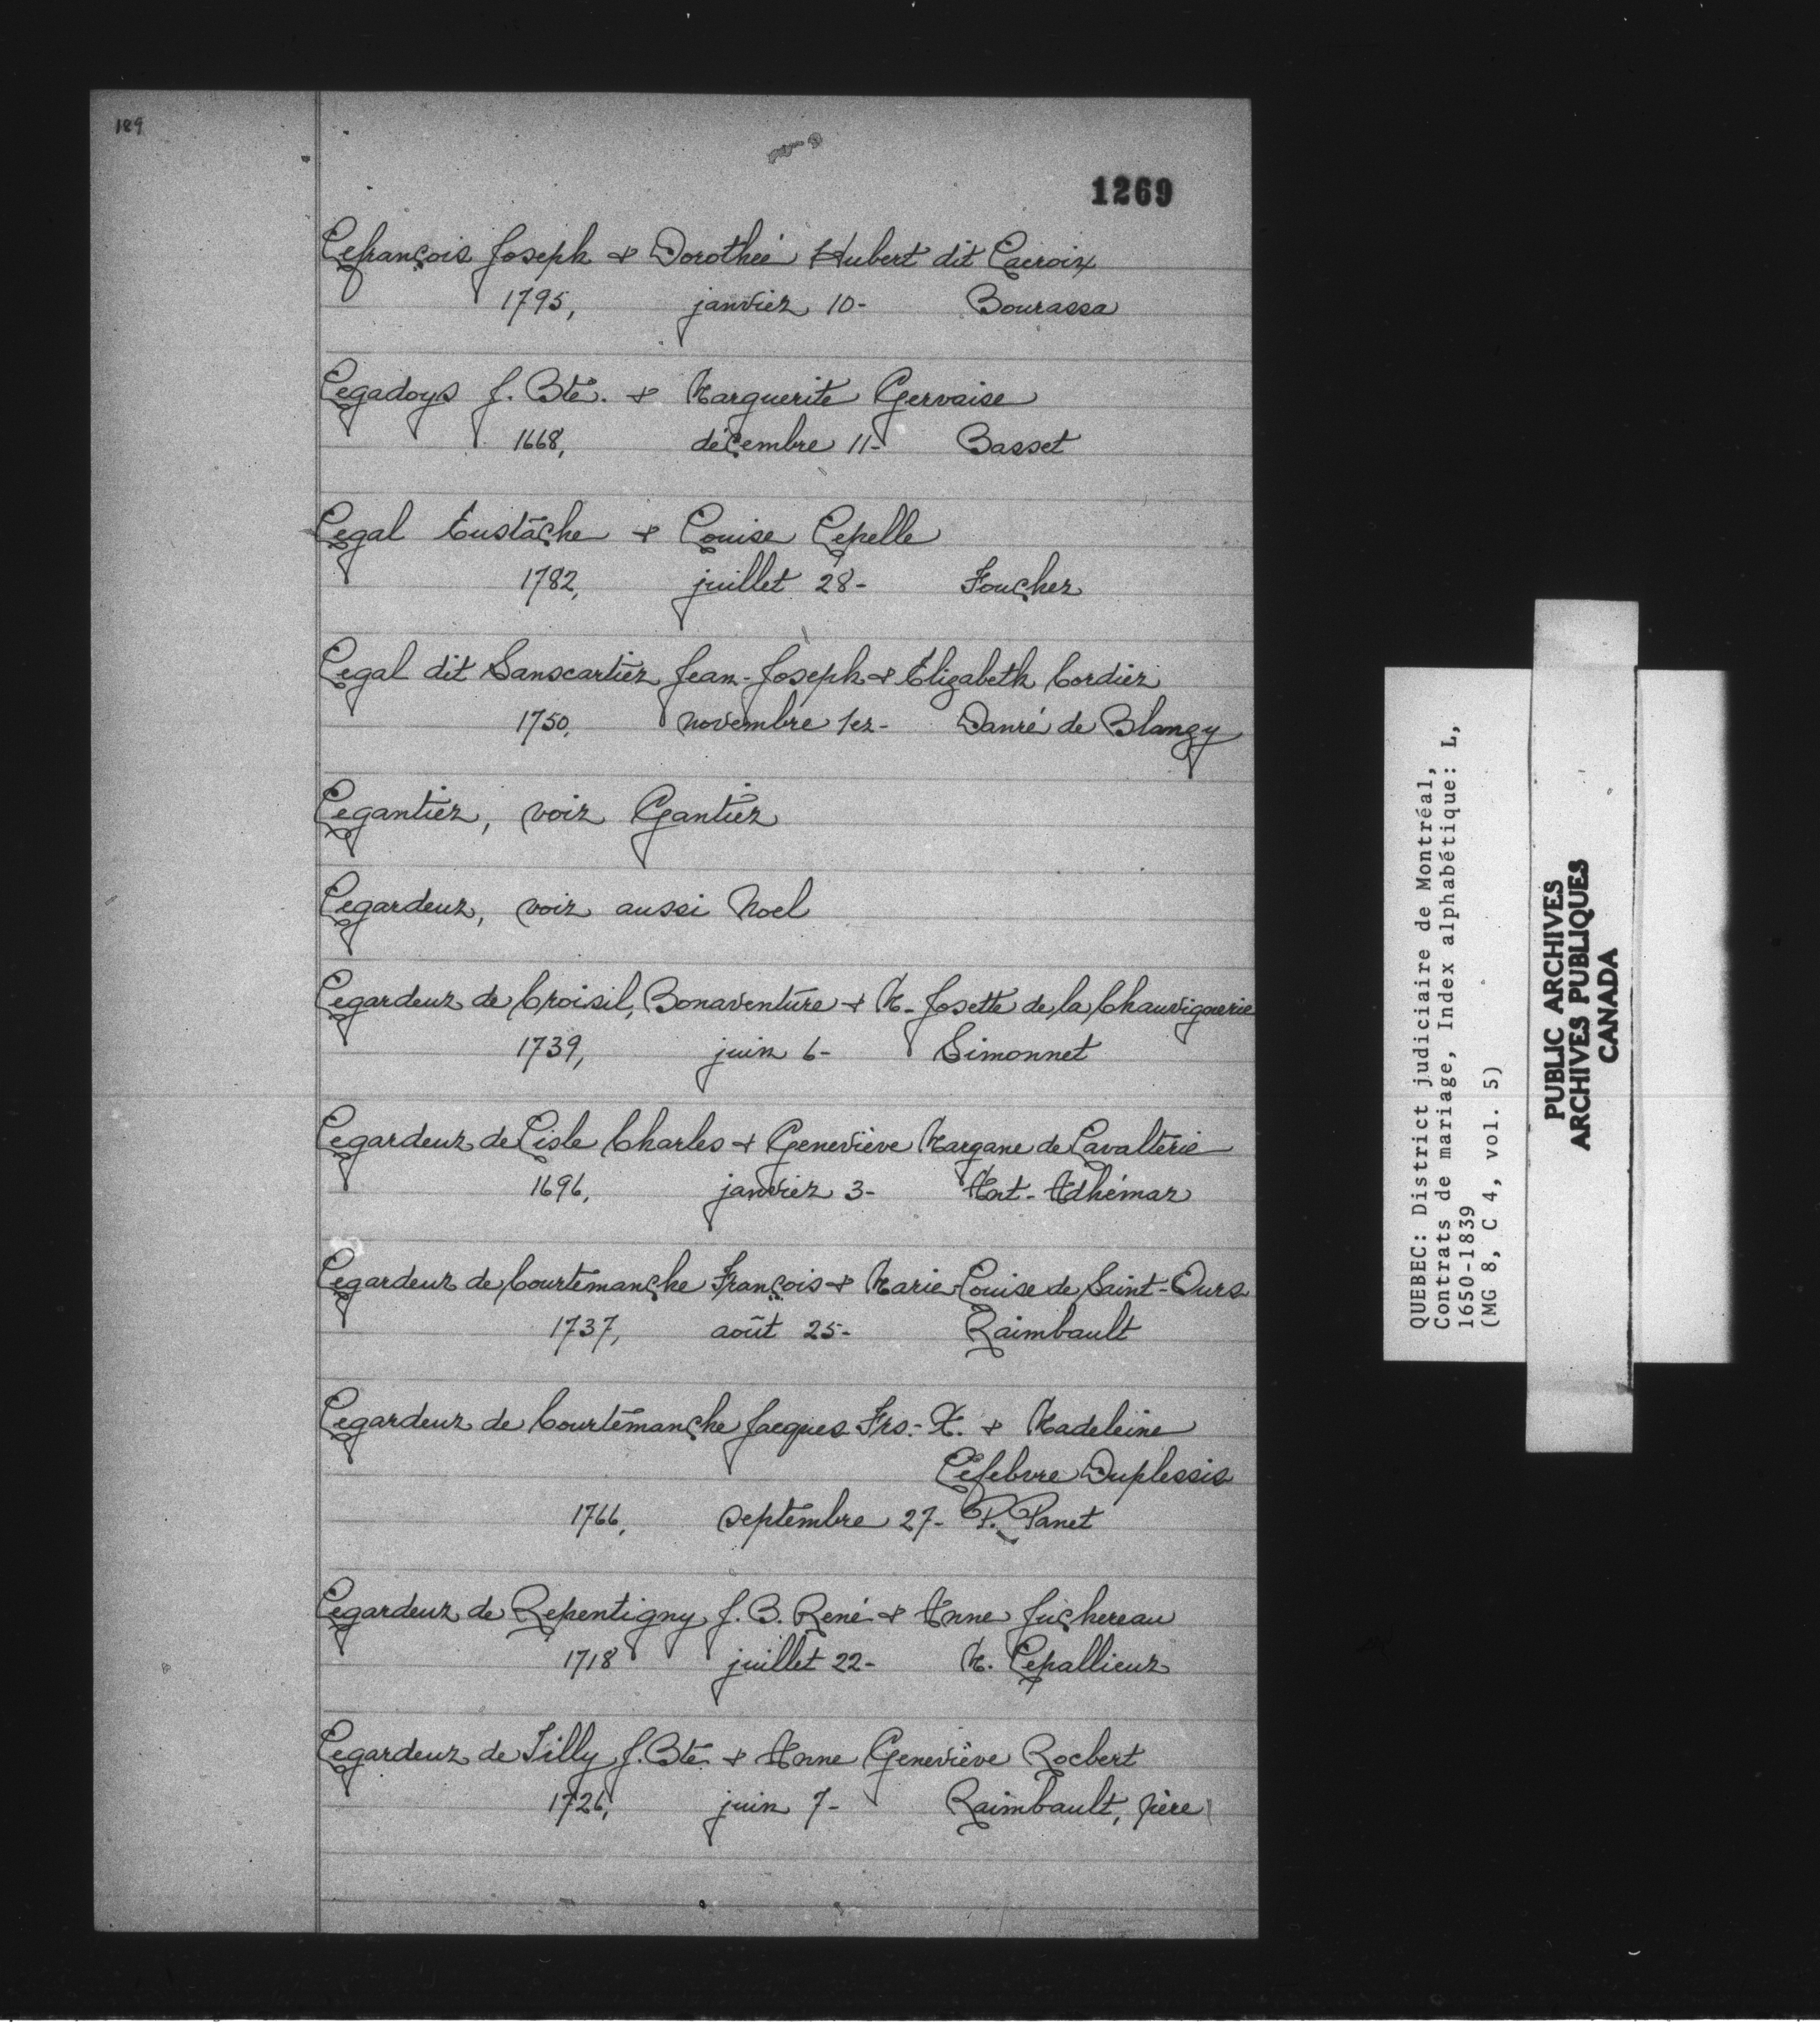 189
1269
Lefrançois Joseph & Dorothée Hubert dit Lacroix
1795, janvier 10- Bourassa
Legadoys J. Bte. & Marguerite Gervaise
1668, décembre 11- Basset
Legal Eustache & Louise Lepelle
1782, juillet 28- Foucher
Legal dit Sanscartier Jean-Joseph & Élizabeth Cordier
1750, novembre 1er- Danré de Blanzy
Legantier, voir Gantier
Legardeur, voir aussi Noel
Legardeur de Croisil, Bonaventure & M-Josette de la Chauvignerie
1739, juin 6- Simonnet
Legardeur de Lisle Charles & Geneviève Margane de Lavalterie
1696, janvier 3- Ant-Adhémar
Legardeur de Courtemanche François & Marie-Louise de Saint-Ours
1737, août 25- Raimbault
Legardeur de Courtemanche Jacques Frs.-X. & Madeleine
Lefebvre Duplessis
1766, septembre 27- P. Panet
Legardeur de Repentigny J. B. René & Anne Juchereau
1718 juillet 22- M. Lepallieur
Legardeur de Tilly J. Bte & Anne Geneviève Rocbert
1726, juin 7- Raimbault, père
QUEBEC: District judiciaire de Montréal,
Contrats de mariage, Index alphabétique: L,
1650-1839
(MG 8, C 4, vol. 5)
PUBLIC ARCHIVES
ARCHIVES PUBLIQUES
CANADA